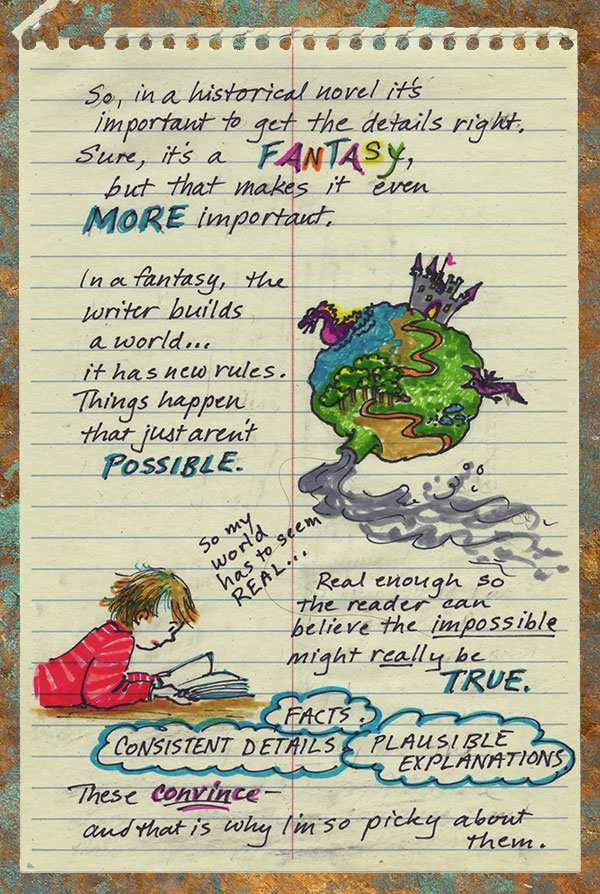 So, in a historical novel it's
important to get the details right.
Sure, it's a FANTASY,
but that makes it even
MORE important.
In a fantasy, the
writer builds
a world...
it has new rules.
Things happen
that just aren't
POSSIBLE.
so my
world
has to seem
REAL...
Real enough so
the reader can
believe the impossible
might really be
TRUE.
FACTS.
CONSISTENT DETAILS
PLAUSIBLE
EXPLANATIONS
These convince—
and that is why I'm so picky about
them.